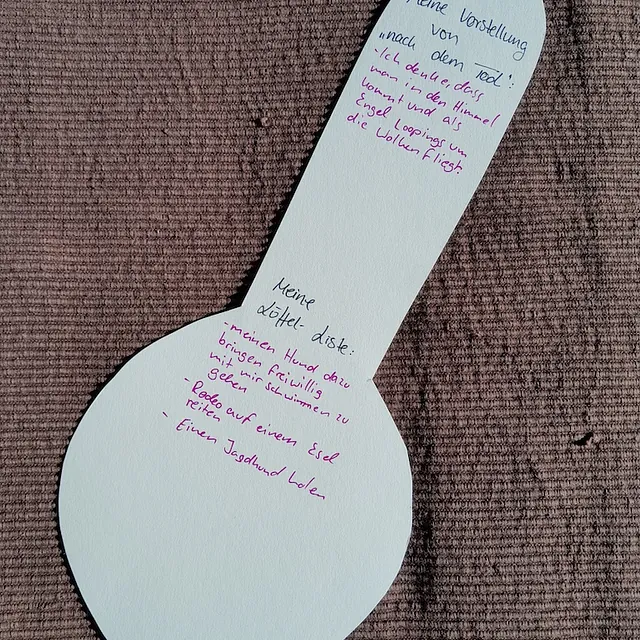 Meine Vorstellung
von
„nach dem Tod":
- Ich denke, dass
man in den Himmel
kommt und als
Engel Loopings um
die Wolken fliegt.
Meine
Löffel-Liste:
- meinen Hund dazu
bringen freiwillig
mit mir schwimmen zu
gehen
- Rodeo auf einem Esel
reiten
- Einen Jagdhund holen